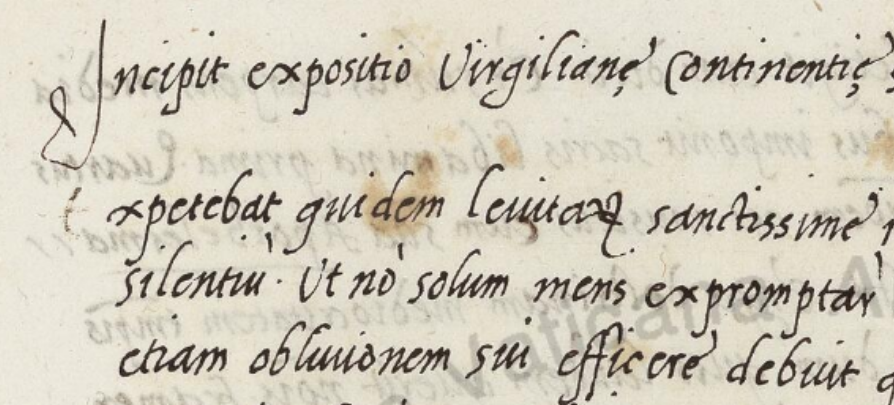 Incipit expositio Virgilianę Continentię
xpetebat quidem leuitaꝝ sanctissime
silentiū. Ut nō solum mens expromptar̄
etiam obliuionem sui efficere debuit